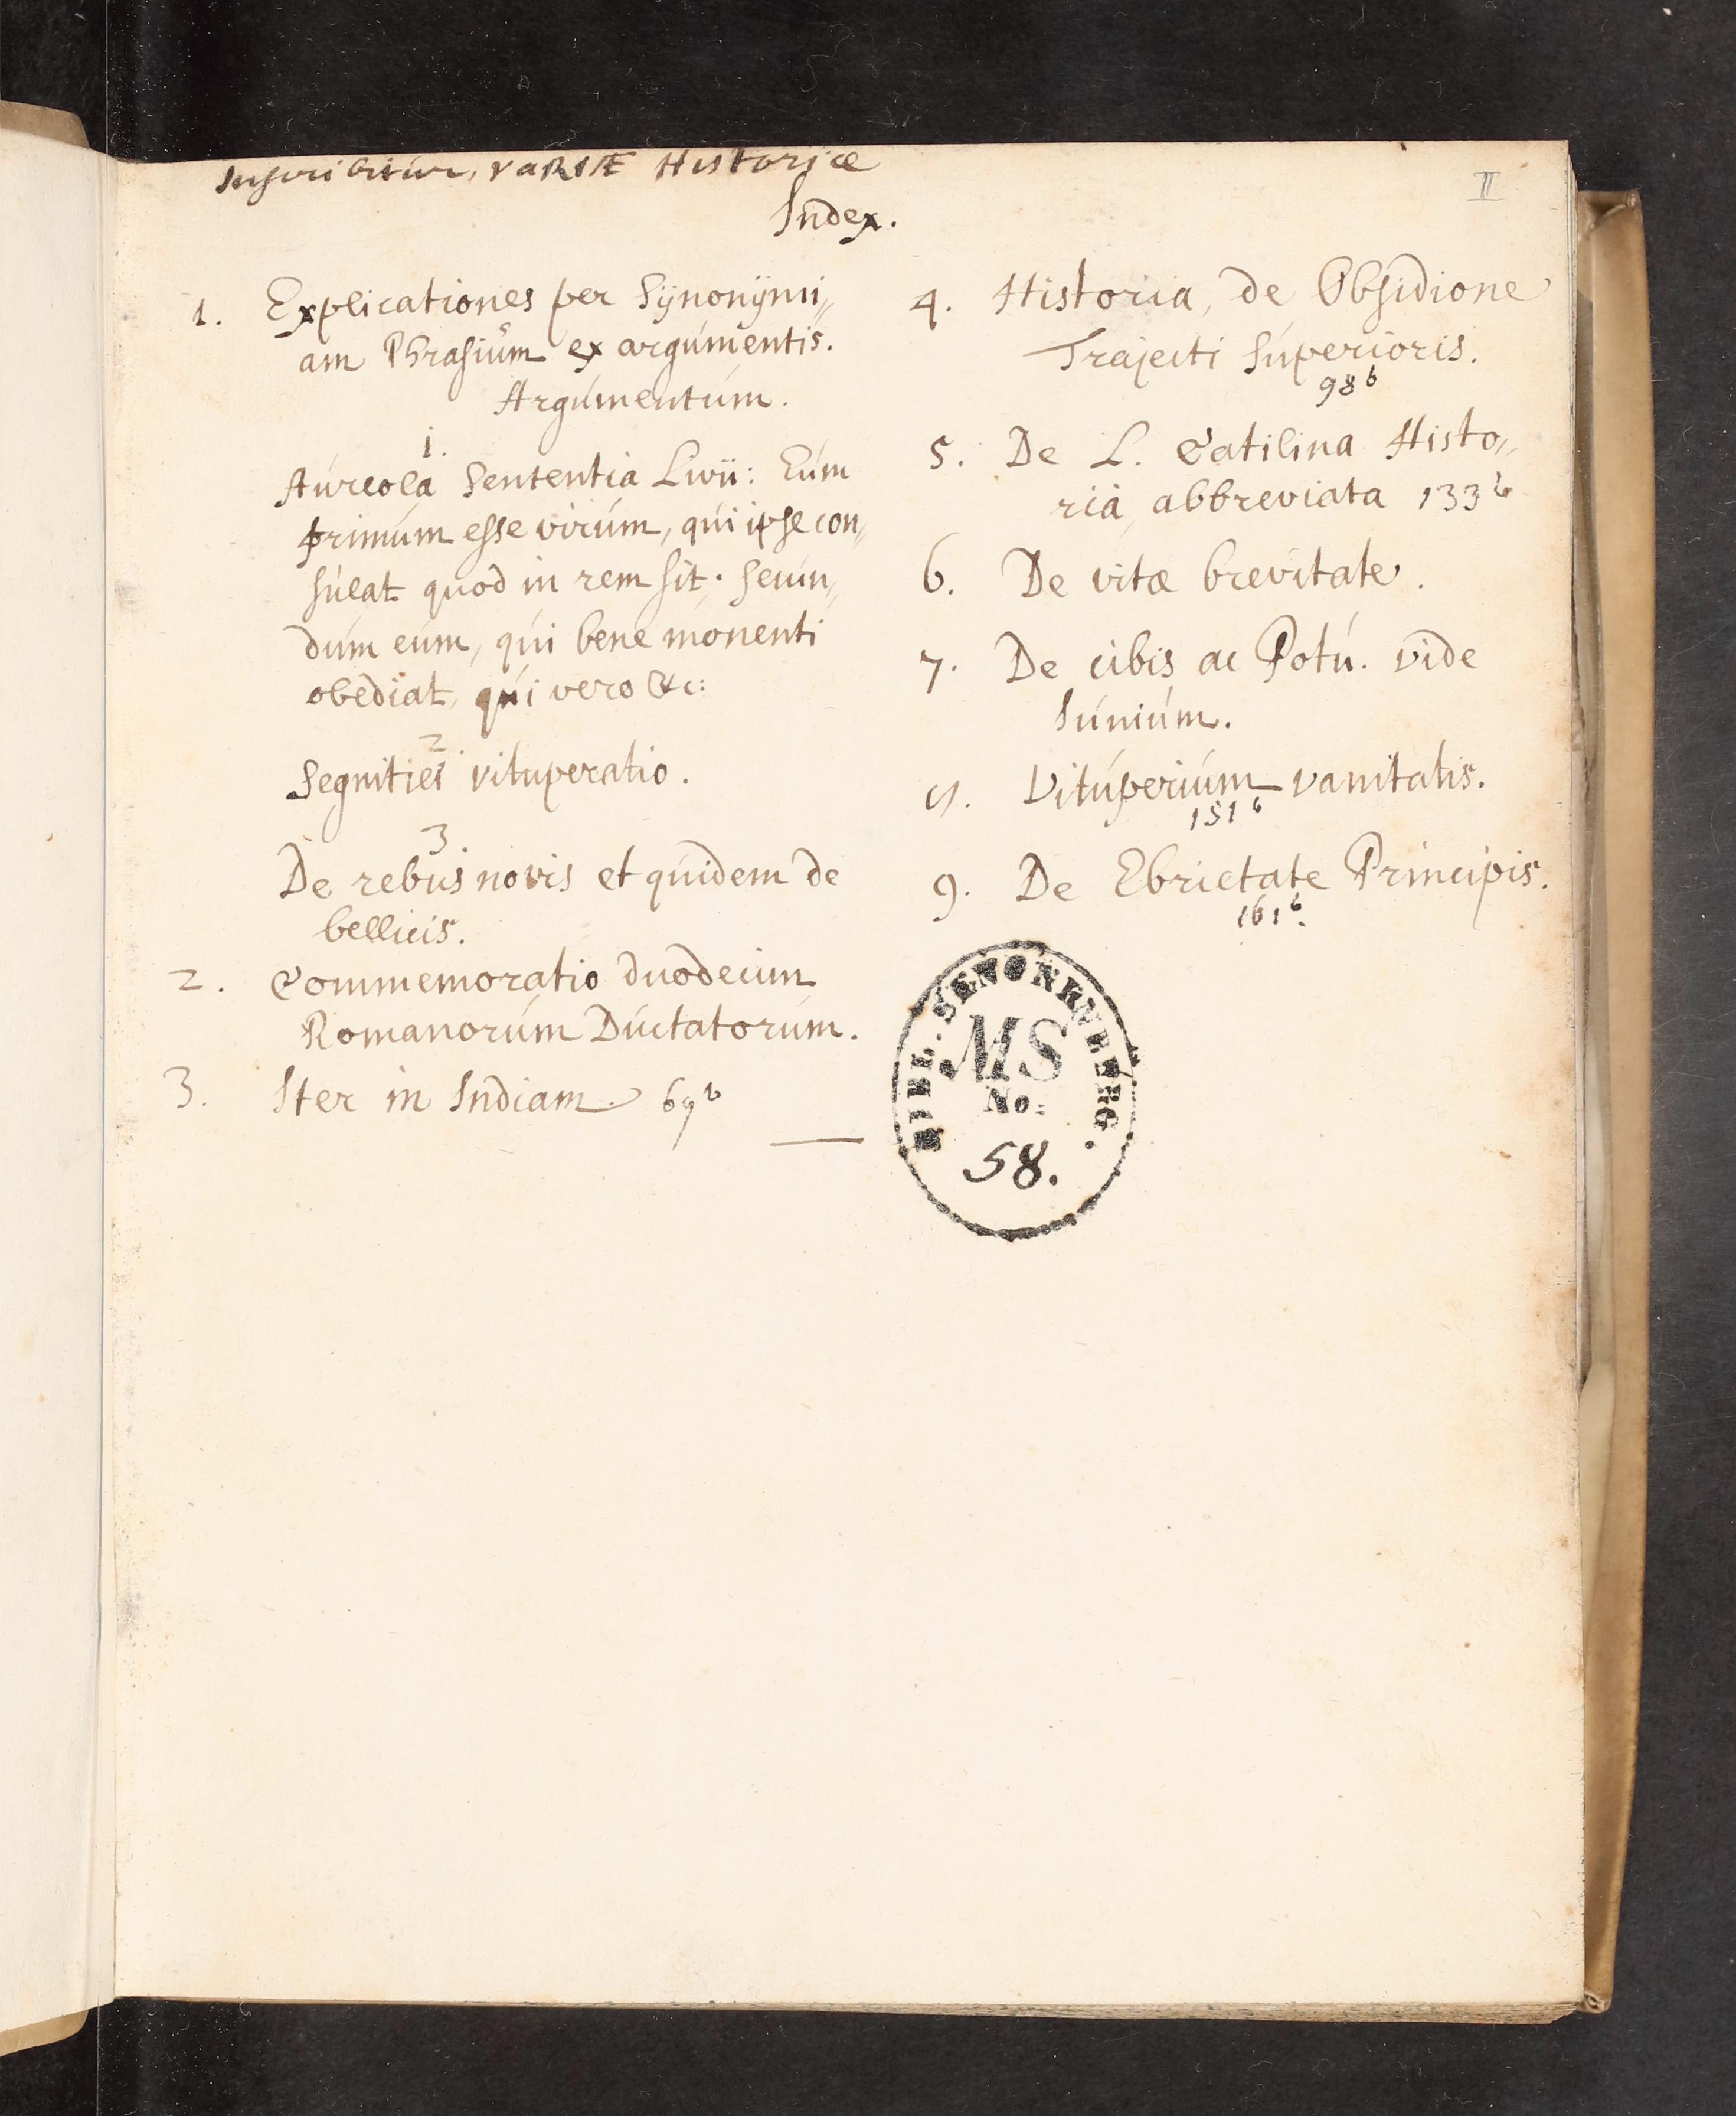 Inscribitur, VARIÆ Historiæ
II
Index.
1. Explicationes per Sÿnonÿmi„
am Phrasium ex argumentis.
Argumentum.
1.
Aureola Sententia Livii: Eum
primum esse virum, qui ipse con„
sulat quod in rem sit. Secun„
dum eum, qui bene monenti
obediat, qui vero &c:
2
Segnitiei vituperatio.
3
De rebus novis et quidem de
bellicis.
2. Commemoratio duodecim
Romanorum Dictatorum.
3. Iter in Indiam. 69b
4. Historia, de Obsidione
Trajecti Superioris.
98b
5. De L. Catilina Histo„
ria abbreviata 133b
6. De vitæ brevitate.
7. De cibis ac Potu. vide
Sunium.
8. Vituperium vanitatis.
151b
9. De Ebrietate Principis.
161b.
BIBL. SENONENBERG.
MS
No:
58.